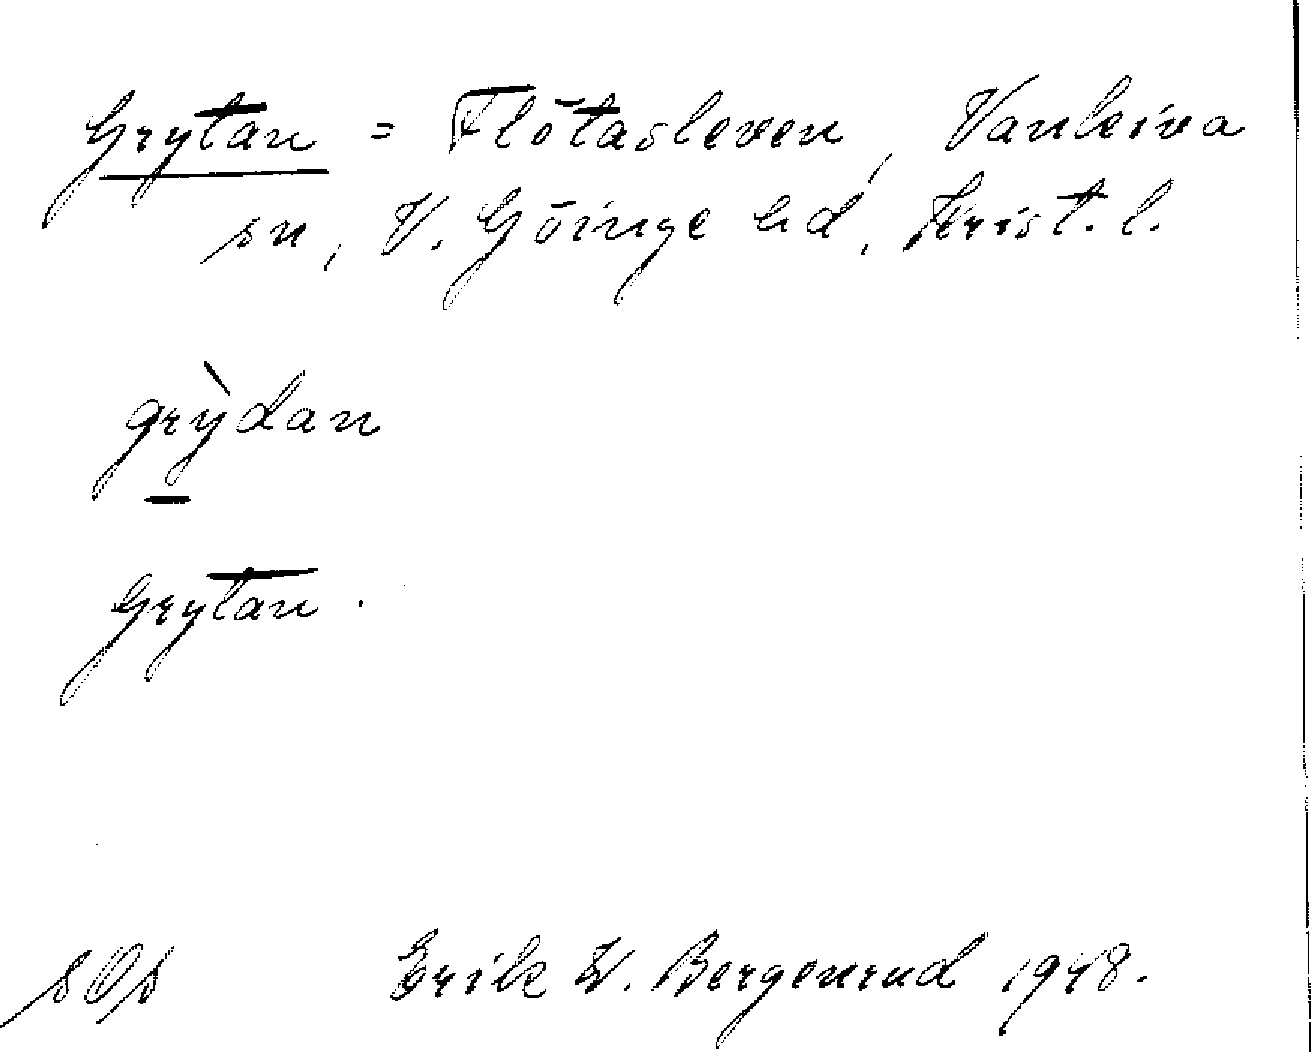 Grytan = Flötasleven, Vankiva
sn, V. Göinge hd, Krist. l.
grỳdan
Grytan.
Erik W. Bergenrud 1948.